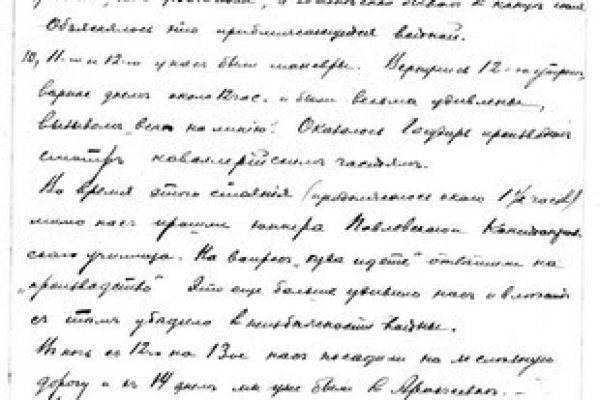 Объяснялось это приближающейся войной.
10, 11-го и 12-го у нас были маневры. Вернулись 12-го утром,
вернее днем около 12 час. и были весьма удивлены,
вызовом "всех на линию". Оказалось Государь производит
смотр кавалерийским частям.
Во время этого стояния (продолжалось около 1½ часов)
мимо нас прошли юнкера Павловского
ского училища. На вопрос "куда идете" ответили на
"производство" Это еще больше удивило нас и
с тем убедило в неизбежности войны.
В ночь с 12го на 13ое нас посадили на железную
дорогу и 14 днем мы уже были в